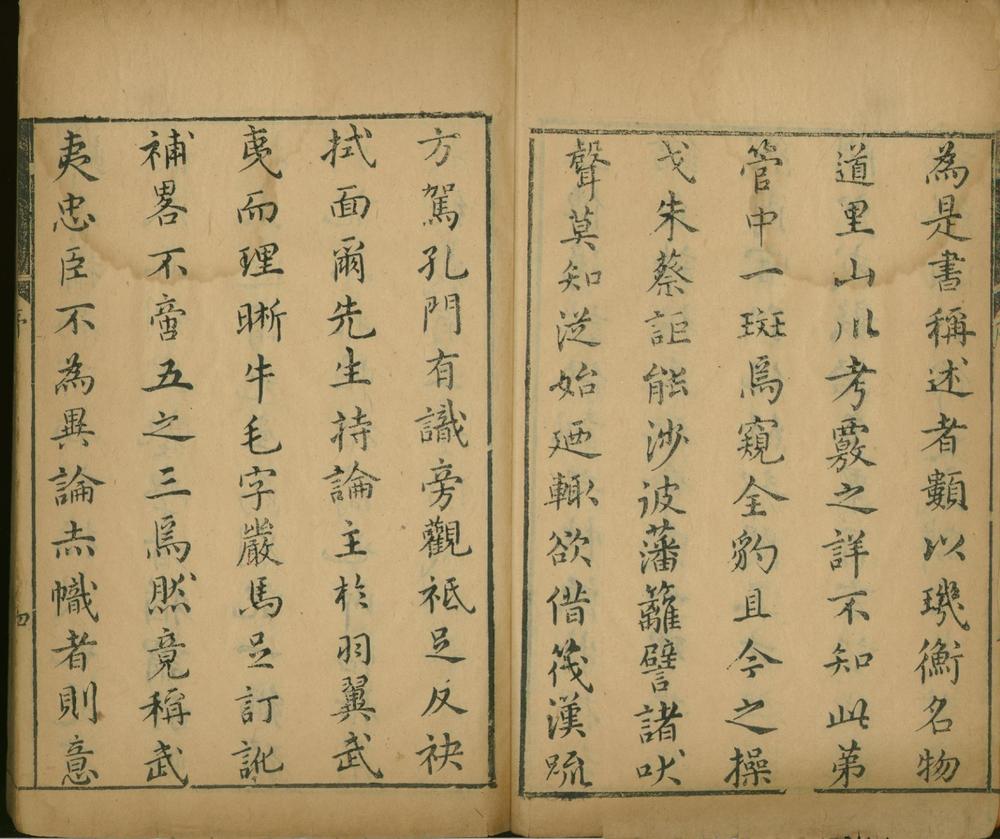 為是書稱述者類以璣衡名物
道里山川考覈之詳不知此第
管中一斑烏窺全豹且今之操
戈朱蔡詎能涉彼藩籬譬諸吠
聲莫知從始廼輒欲借筏漢疏
方駕孔門有識旁觀祗足反袂
拭面爾先生持論主於羽翼武
夷而理晰牛毛字嚴馬足訂訛
補畧不啻五之三焉然竟稱武
夷忠臣不為異論赤幟者則意
序
四